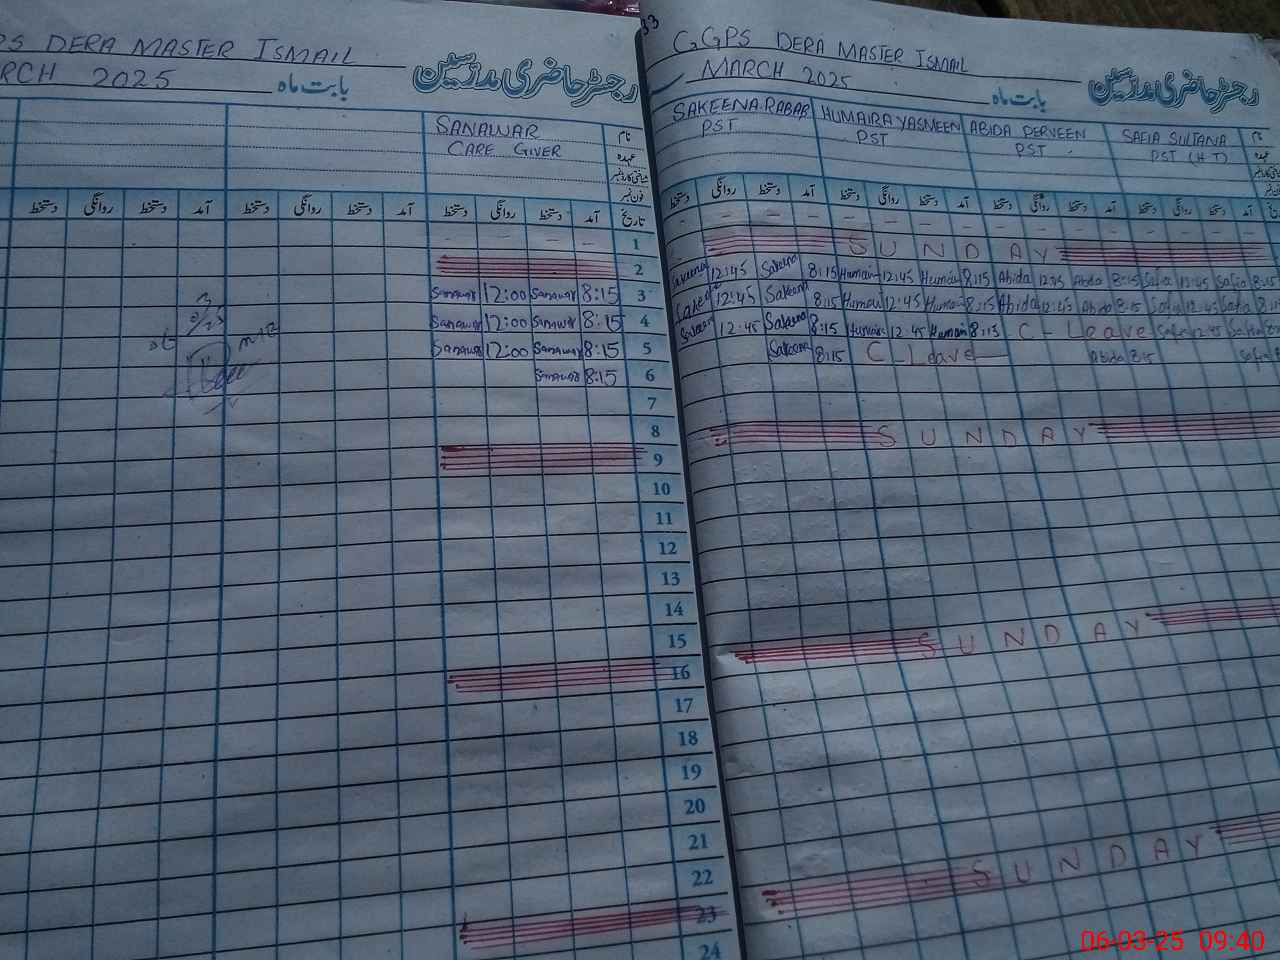 PS DERA MASTER ISMAIL
RCH 2025 بابت ماہ رجسٹر حاضری مدرسین
SANAWAR نام
CARE GIVER عہدہ
شناختی کارڈ نمبر
فون نمبر
دستخط روانگی دستخط آمد دستخط روانگی دستخط آمد دستخط روانگی دستخط آمد تاریخ
- - - - 1
2
Sanawar 12:00 Sanawar 8:15 3
Sanawar 12:00 Sanawar 8:15 4
Sanawar 12:00 Sanawar 8:15 5
Sanawar 8:15 6
7
8
9
10
11
12
13
14
15
16
17
18
19
20
21
22
23
24
33
GGPS DERA MASTER ISMAIL
MARCH 2025 بابت ماہ رجسٹر حاضری مدرسین
SAKEENA RABAB HUMAIRA YASMEEN ABIDA PERVEEN SAFIA SULTANA نام
PST PST PST PST (H T) عہدہ
دستخط روانگی دستخط آمد دستخط روانگی دستخط آمد دستخط روانگی دستخط آمد دستخط روانگی دستخط آمد
SUNDAY
Sakeena 12:45 Sakeena 8:15 Humaira 12:45 Humaira 8:15 Abida 12:45 Abida 8:15 Safia 12:45 Safia 8:15
Sakeena 12:45 Sakeena 8:15 Humaira 12:45 Humaira 8:15 Abida 12:45 Abida 8:15 Safia 12:45 Safia 8:15
Sakeena 12:45 Sakeena 8:15 Humaira 12:45 Humaira 8:15 C - Leave Safia 12:45 Safia
Sakeena 8:15 C - Leave Abida 8:15 Safia
SUNDAY
SUNDAY
SUNDAY
06-03-25 09:40